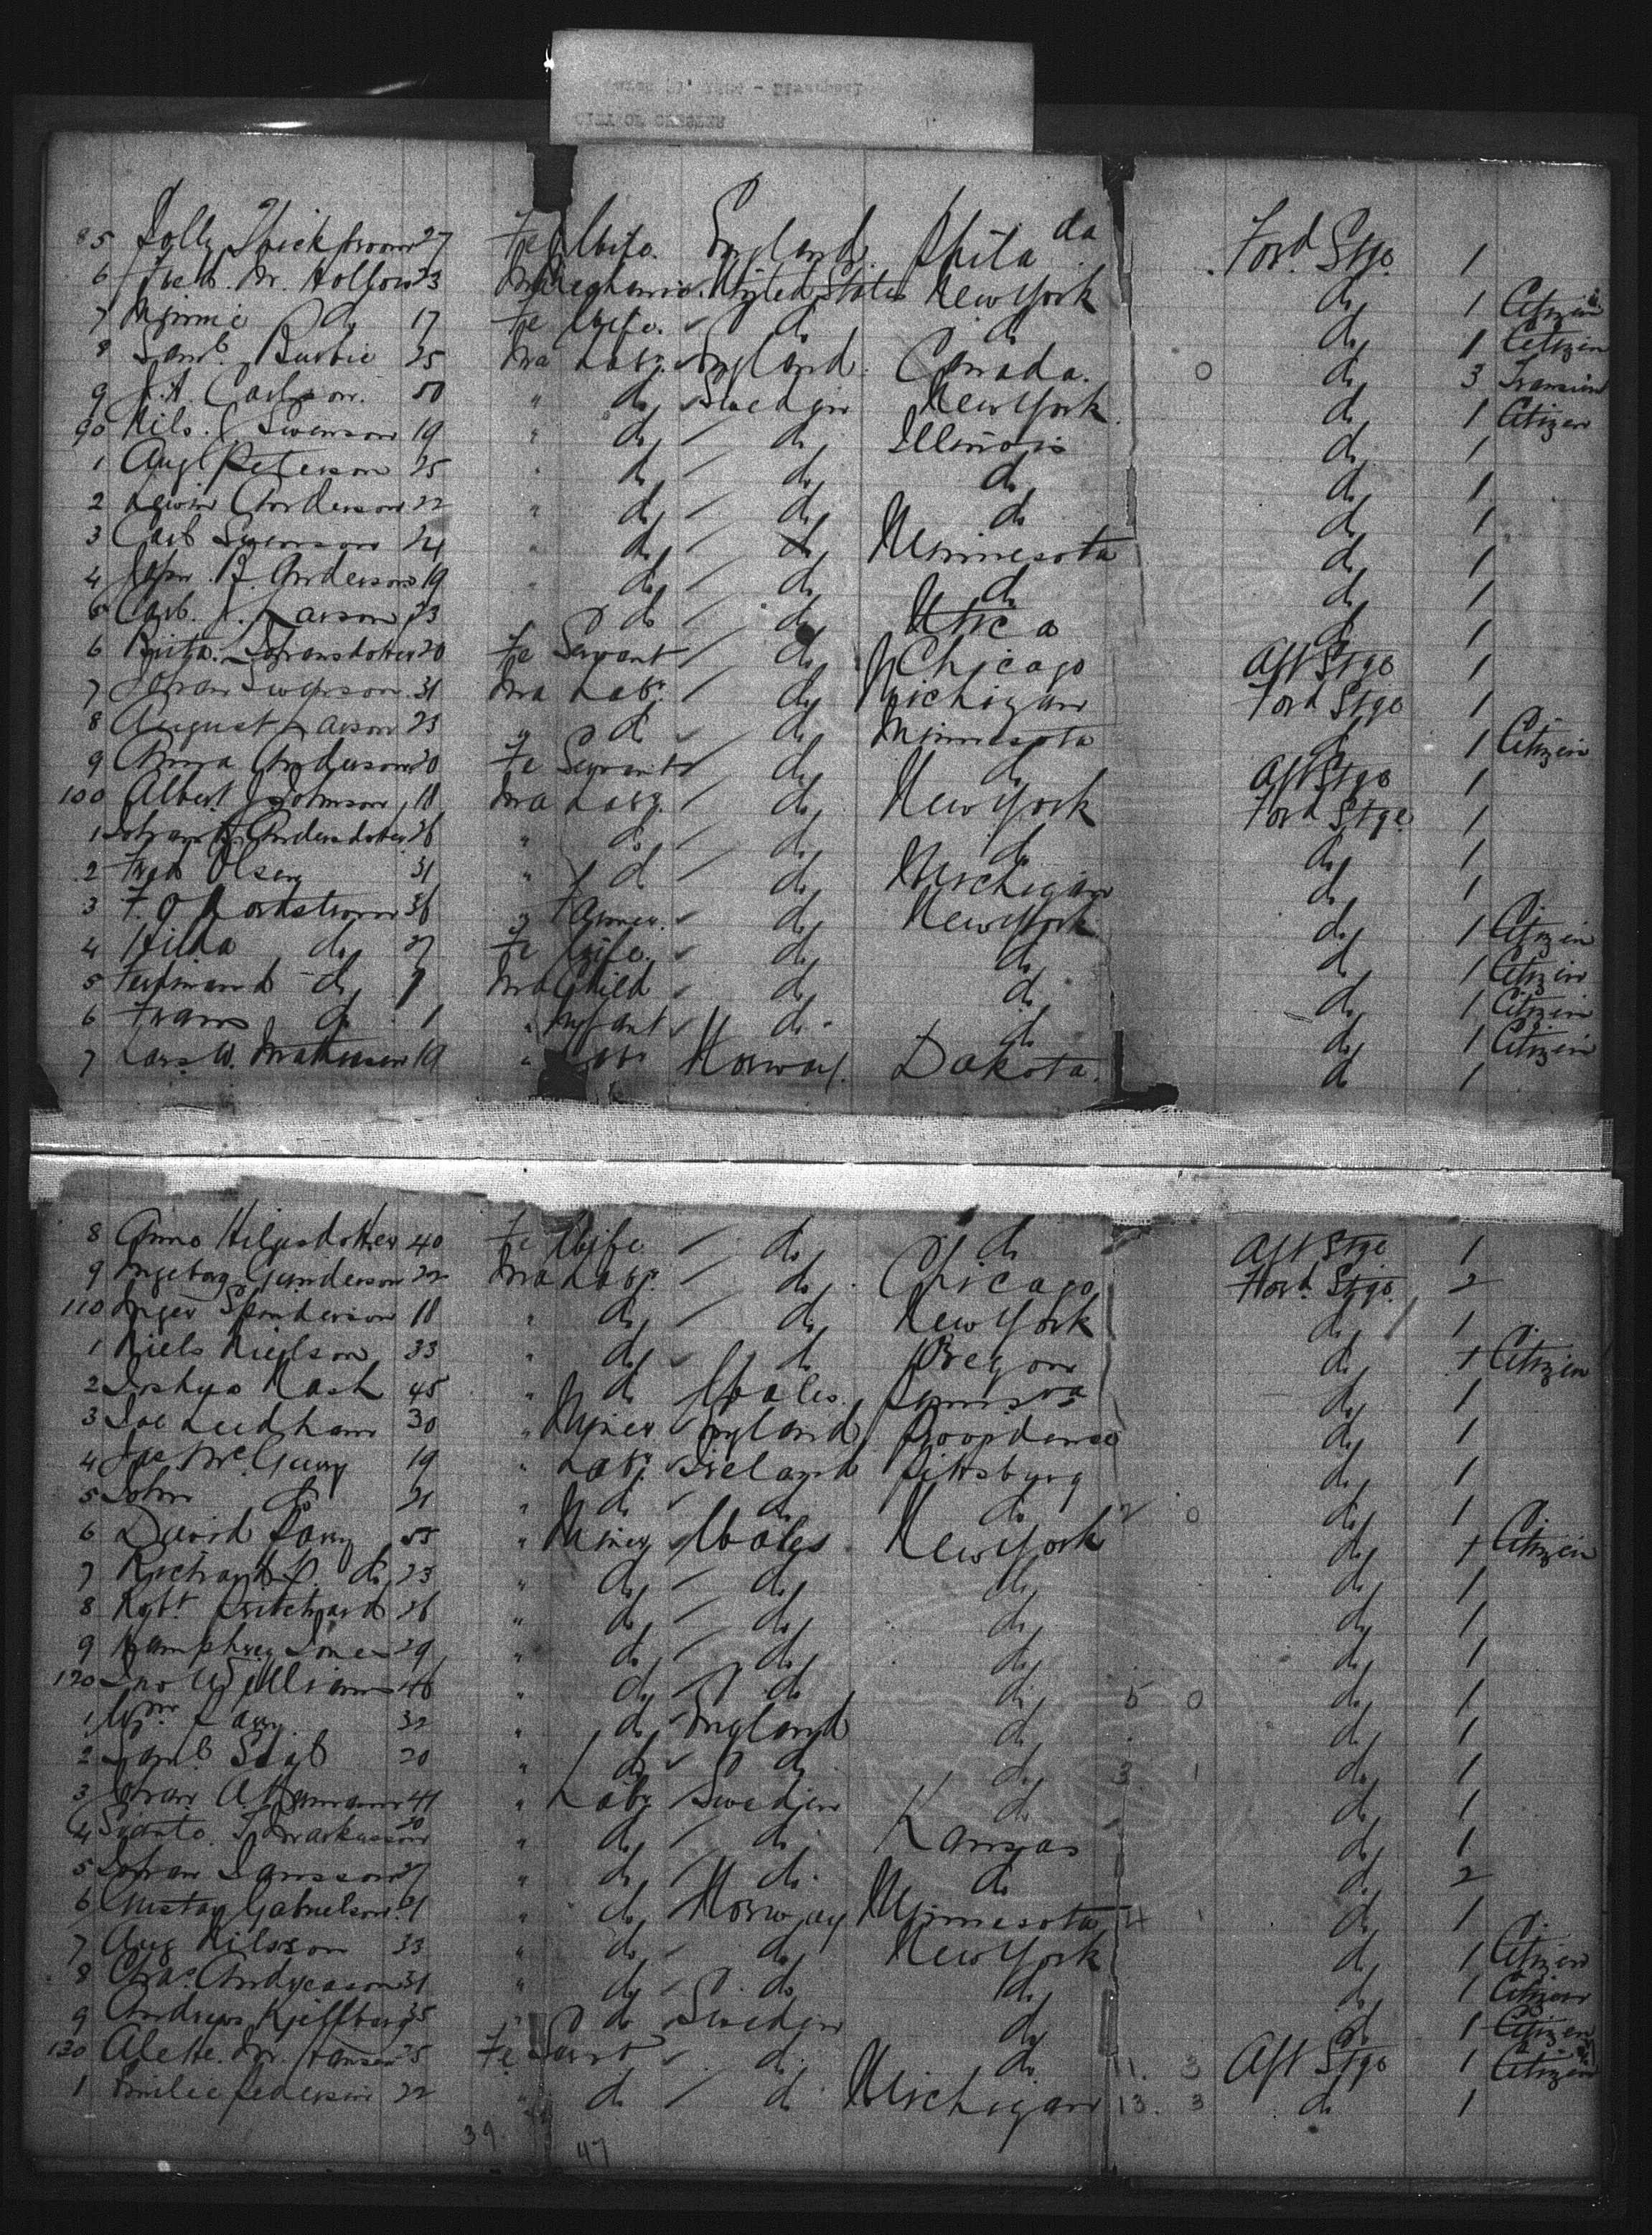 85 Polly Thickbroom 27 Fe Wife. England. Phila da Ford Stge 1
6 Fred. M. Hollow 23 Ma Mechanic. United States New York do 1 Citizen
7 Minnie do 17 Fe Wife. do do do 1 Citizen
8 Saml. 25 Ma Labr. England. Canada. 0 do 3
9 J. A. Carlson. 50 " do Sweden New York do 1 Citizen
90 Nils. Swenson 19 " do do Illinois do 1
1 Aug Peterson 25 " do do do do 1
2 Anderson 22 " do do do do 1
3 Carl Swenson 24 " do do Minnesota do 1
4 John. B Anderson 19 " do do do do 1
5 Carl. J. Larson 23 do do Utica do 1
6 Brita. Johansdotter 20 Fe Servant do Chicago Aft Stge 1
7 Johan Swenson. 31 Ma Labr. do Michigan Ford Stge 1
8 August Larson 23 " do do Minnesota do 1 Citizen
9 Anna Anderson 20 Fe Servant do do Aft Stge 1
100 Albert Johnson 18 Ma Labr. do New York Ford Stge 1
1 Andersdotter 26 " do do do do 1
2 Fred Olsen 31 " do do Michigan do 1
3 F. O 36 " Farmer. do New York do 1 Citizen
4 Hilda do 27 Fe Wife. do do do 1 Citizen
5 Ferdinand do 7 Ma Child do do do 1 Citizen
6 Frans do 1 " Infant do do do 1 Citizen
7 Lars. W. Mathieson 19 " Labr Norway. Dakota. do 1
8 Anna 40 Fe Wife do do Aft Stge 1
9 Ingeborg Gunderson 22 Ma Labr. do Chicago Ford. Stge. 2
110 Inger 18 " do do New York do 1
1 Niels Nielson 33 " do do Oregon do 1 Citizen
2 Joshua Nash 45 " do Wales. do 1
3 Joe Leedham 30 " Miner England Providence do 1
4 Jas McGurry 19 " Labr. Ireland Pittsburg do 1
5 John do 21 " do do do 2 0 do 1
6 David Parry 55 " Miner Wales New York do 1 Citizen
7 Richard do 23 " do do do do 1
8 Robt. Pritchard 26 " do do do do 1
9 Humphrey Jones 29 " do do do do 1
120 Jno Williams 46 " do do do 5 0 do 1
1 Wm. Parry. 32 " do England do do 1
2 Saml. 20 " do do do 3 1 do 1
3 Johan 41 " Labr Sweden do do 1
4 Markusson 20 " do do Kansas do 1
5 Johan Jansson 27 " do do do do 2
6 Gustav Gabrielson. 21 " do Norway Minnesota 4 1 do 1
7 Aug Nilsson 33 " do do New York do 1 Citizen
8 Chas. Andreason 31 " do do do do 1 Citizen
9 Andreas Kjellberg 35 " do Sweden do do 1 Citizen
130 Alette. M. Hansen 25 Fe Servt do do 11. 3 Aft Stge 1 Citizen
1 Emilie Pederson 22 " do do Michigan 13. 3 do 1
39. 47